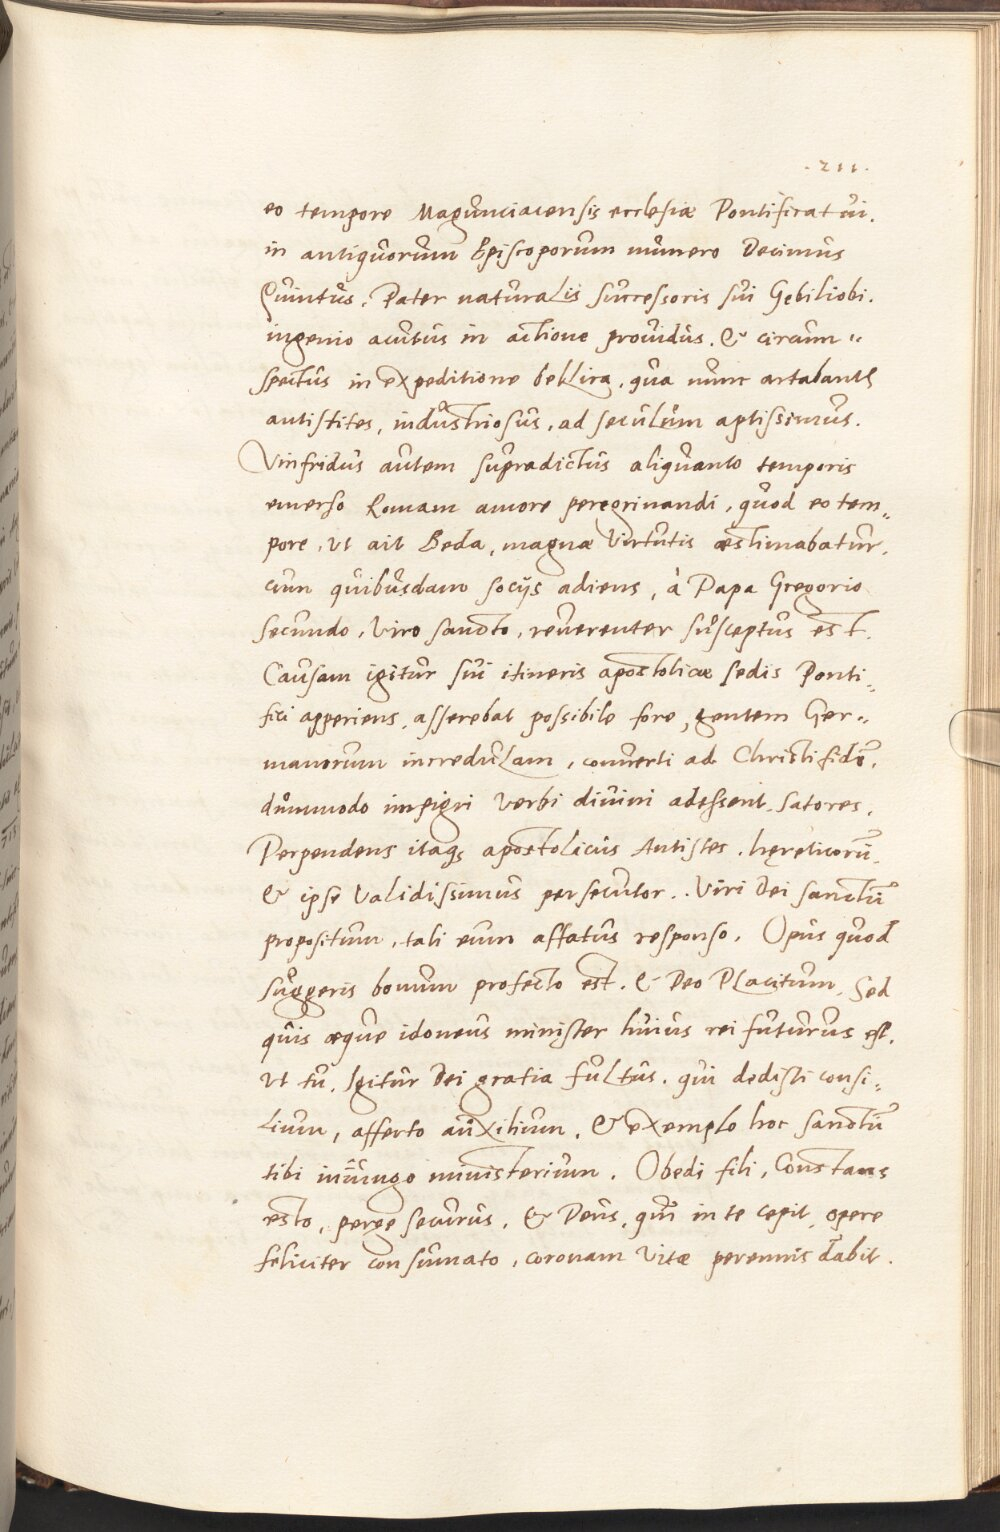 .211.
eo tempore Magunciacensis ecclesiæ Pontificatui.
in antiquorum Episcoporum numero Decimus
Quintus. Pater naturalis successoris sui Gębiliobi.
ingenio acutus in actione prouidus. & circum=
spectus in expeditione bellica, qua nunc
antistites, industriosus, ad seculum aptissimus.
Vinfridus autem supradictus aliquanto temporis
emerso Romam amore peregrinandi, quod eo tem=
pore, ut ait Beda, magnæ virtutis æstimabatur,
cum quibusdam socijs adiens, à Papa Gregorio
secundo, viro sancto, reuerenter susceptus est.
Causam igitur sui itineris apostolicæ sedis Ponti=
fici apperiens, asserebat possibile fore, gentem Ger=
manorum incredulam, conuerti ad Christi fidē,
dummodo impigri verbi diuini adessent satores.
Perpendens itaq; apostolicus Antistes, hęreticorū
& ipse validissimus persecutor. Viri Dei sanctū
propositum, tali eum affatus responso. Opus quod
suggeris bonum profecto est. & Deo Placitum, Sed
quis æque idoneus minister huius rei futurus est,
ut tu. Igitur Dei gratia fultus, qui dedisti consi=
lium, afferto auxilium, & exemplo hoc sanctū
tibi iniungo ministerium. Obedi fili, Constans
esto, perge securus, & Deus, qui in te cepit, opere
feliciter consumato, coronam vitæ perennis dabit.